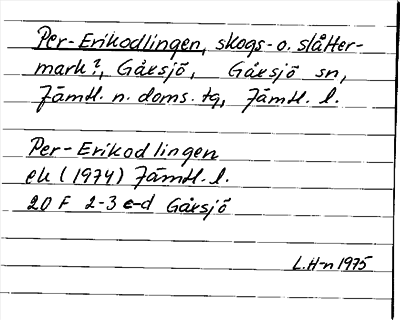 Per-Erikodlingen, skogs- o. slåtter-
mark?, Gåxsjö, Gåxsjö sn,
Jämtl. n. doms. tg, Jämtl. l.
Per-Erikodlingen
ek (1974) Jämtl. l.
20 F 2-3 c-d Gåxsjö
L. H-n 1975